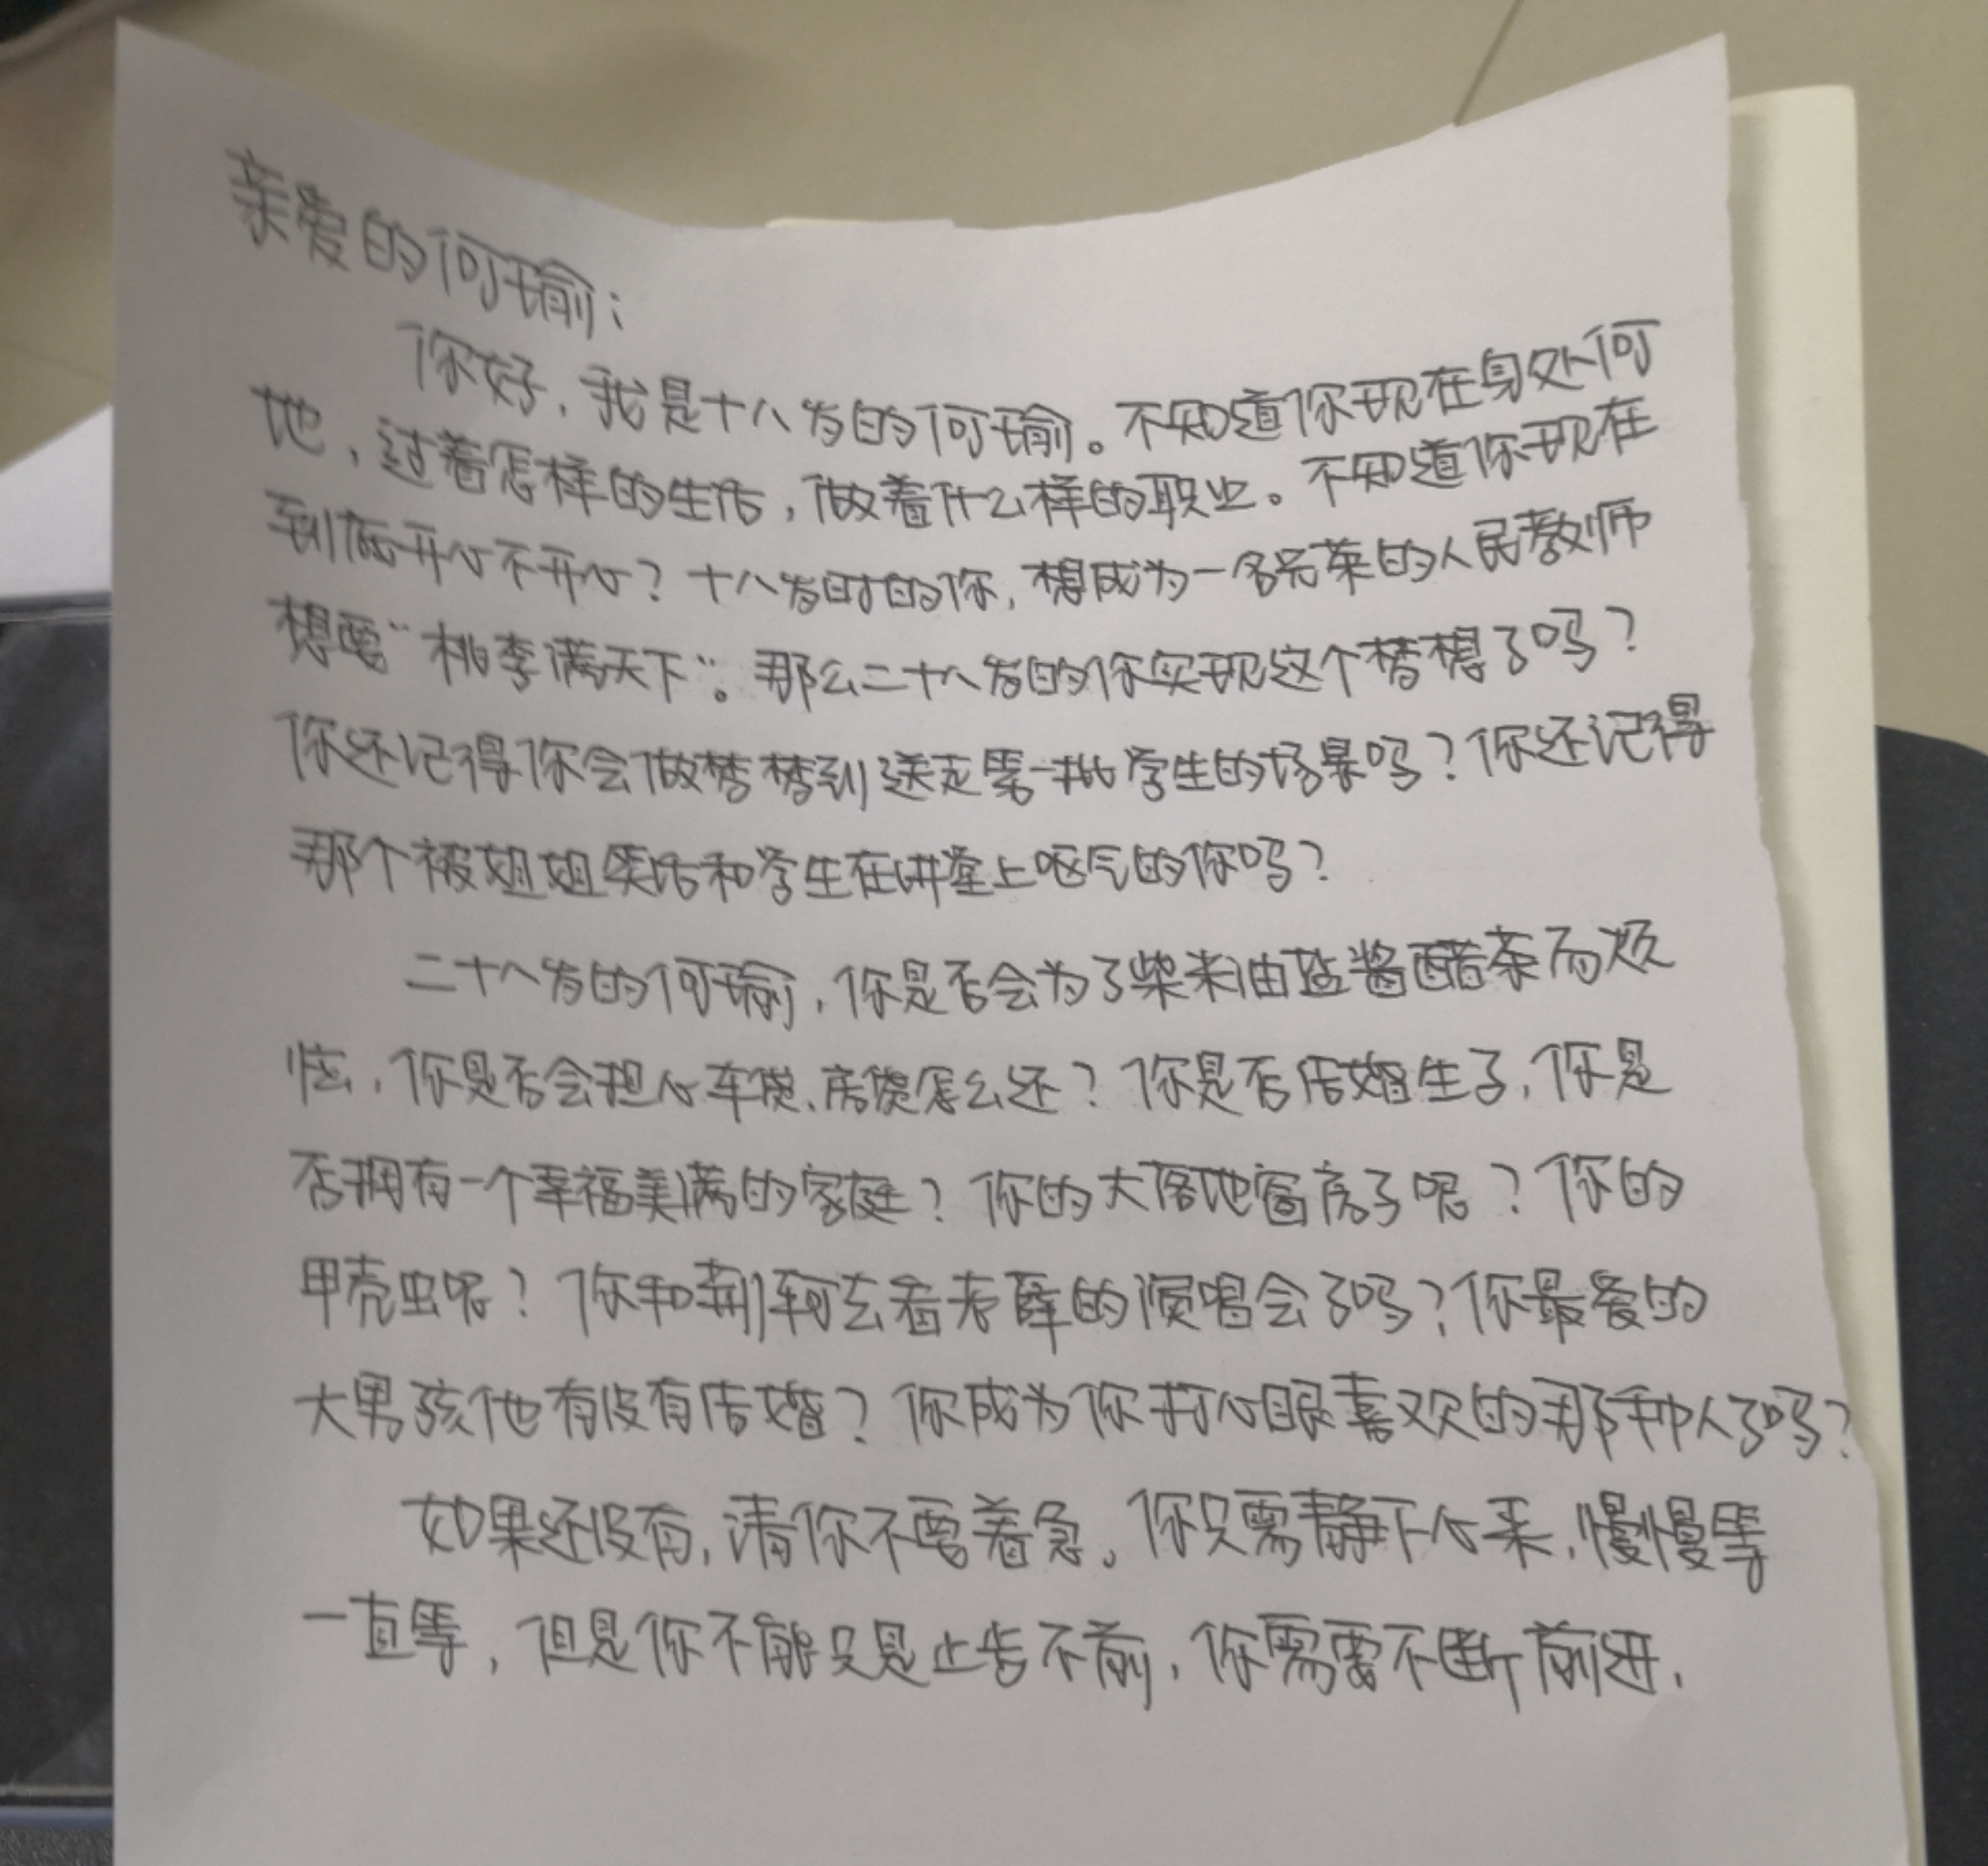 亲爱的何瑜：
你好，我是十八岁的何瑜。不知道你现在身处何
地，过着怎样的生活，做着什么样的职业。不知道你现在
到底开心不开心？十八岁时的你，想成为一名光荣的人民教师
想要“桃李满天下”。那么二十八岁的你实现这个梦想了吗？
你还记得你会做梦梦到送走第一批学生的场景吗？你还记得
那个被姐姐笑话和学生在讲堂上呕气的你吗？
二十八岁的何瑜，你是否会为了柴米油盐酱醋茶而烦
恼，你是否会担心车贷、房贷怎么还？你是否结婚生子，你是
否拥有一个幸福美满的家庭？你的大落地窗房子呢？你的
甲壳虫呢？你和荆轲去看老薛的演唱会了吗？你最爱的
大男孩他有没有结婚？你成为你打心眼喜欢的那种人了吗？
如果还没有，请你不要着急。你只需静下心来，慢慢等
一直等，但是你不能只是止步不前，你需要不断前进，